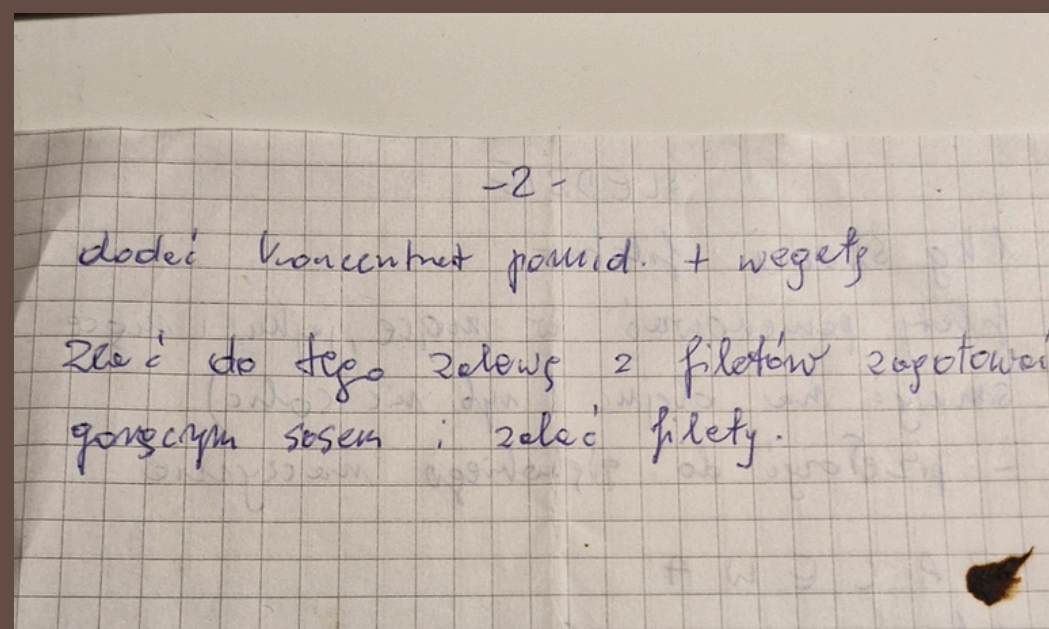 -2-
dodać koncentrat pomid. + wegetę
Zlać do tego zalewę z filetów zagotować
gorącym sosem i zalać filety.